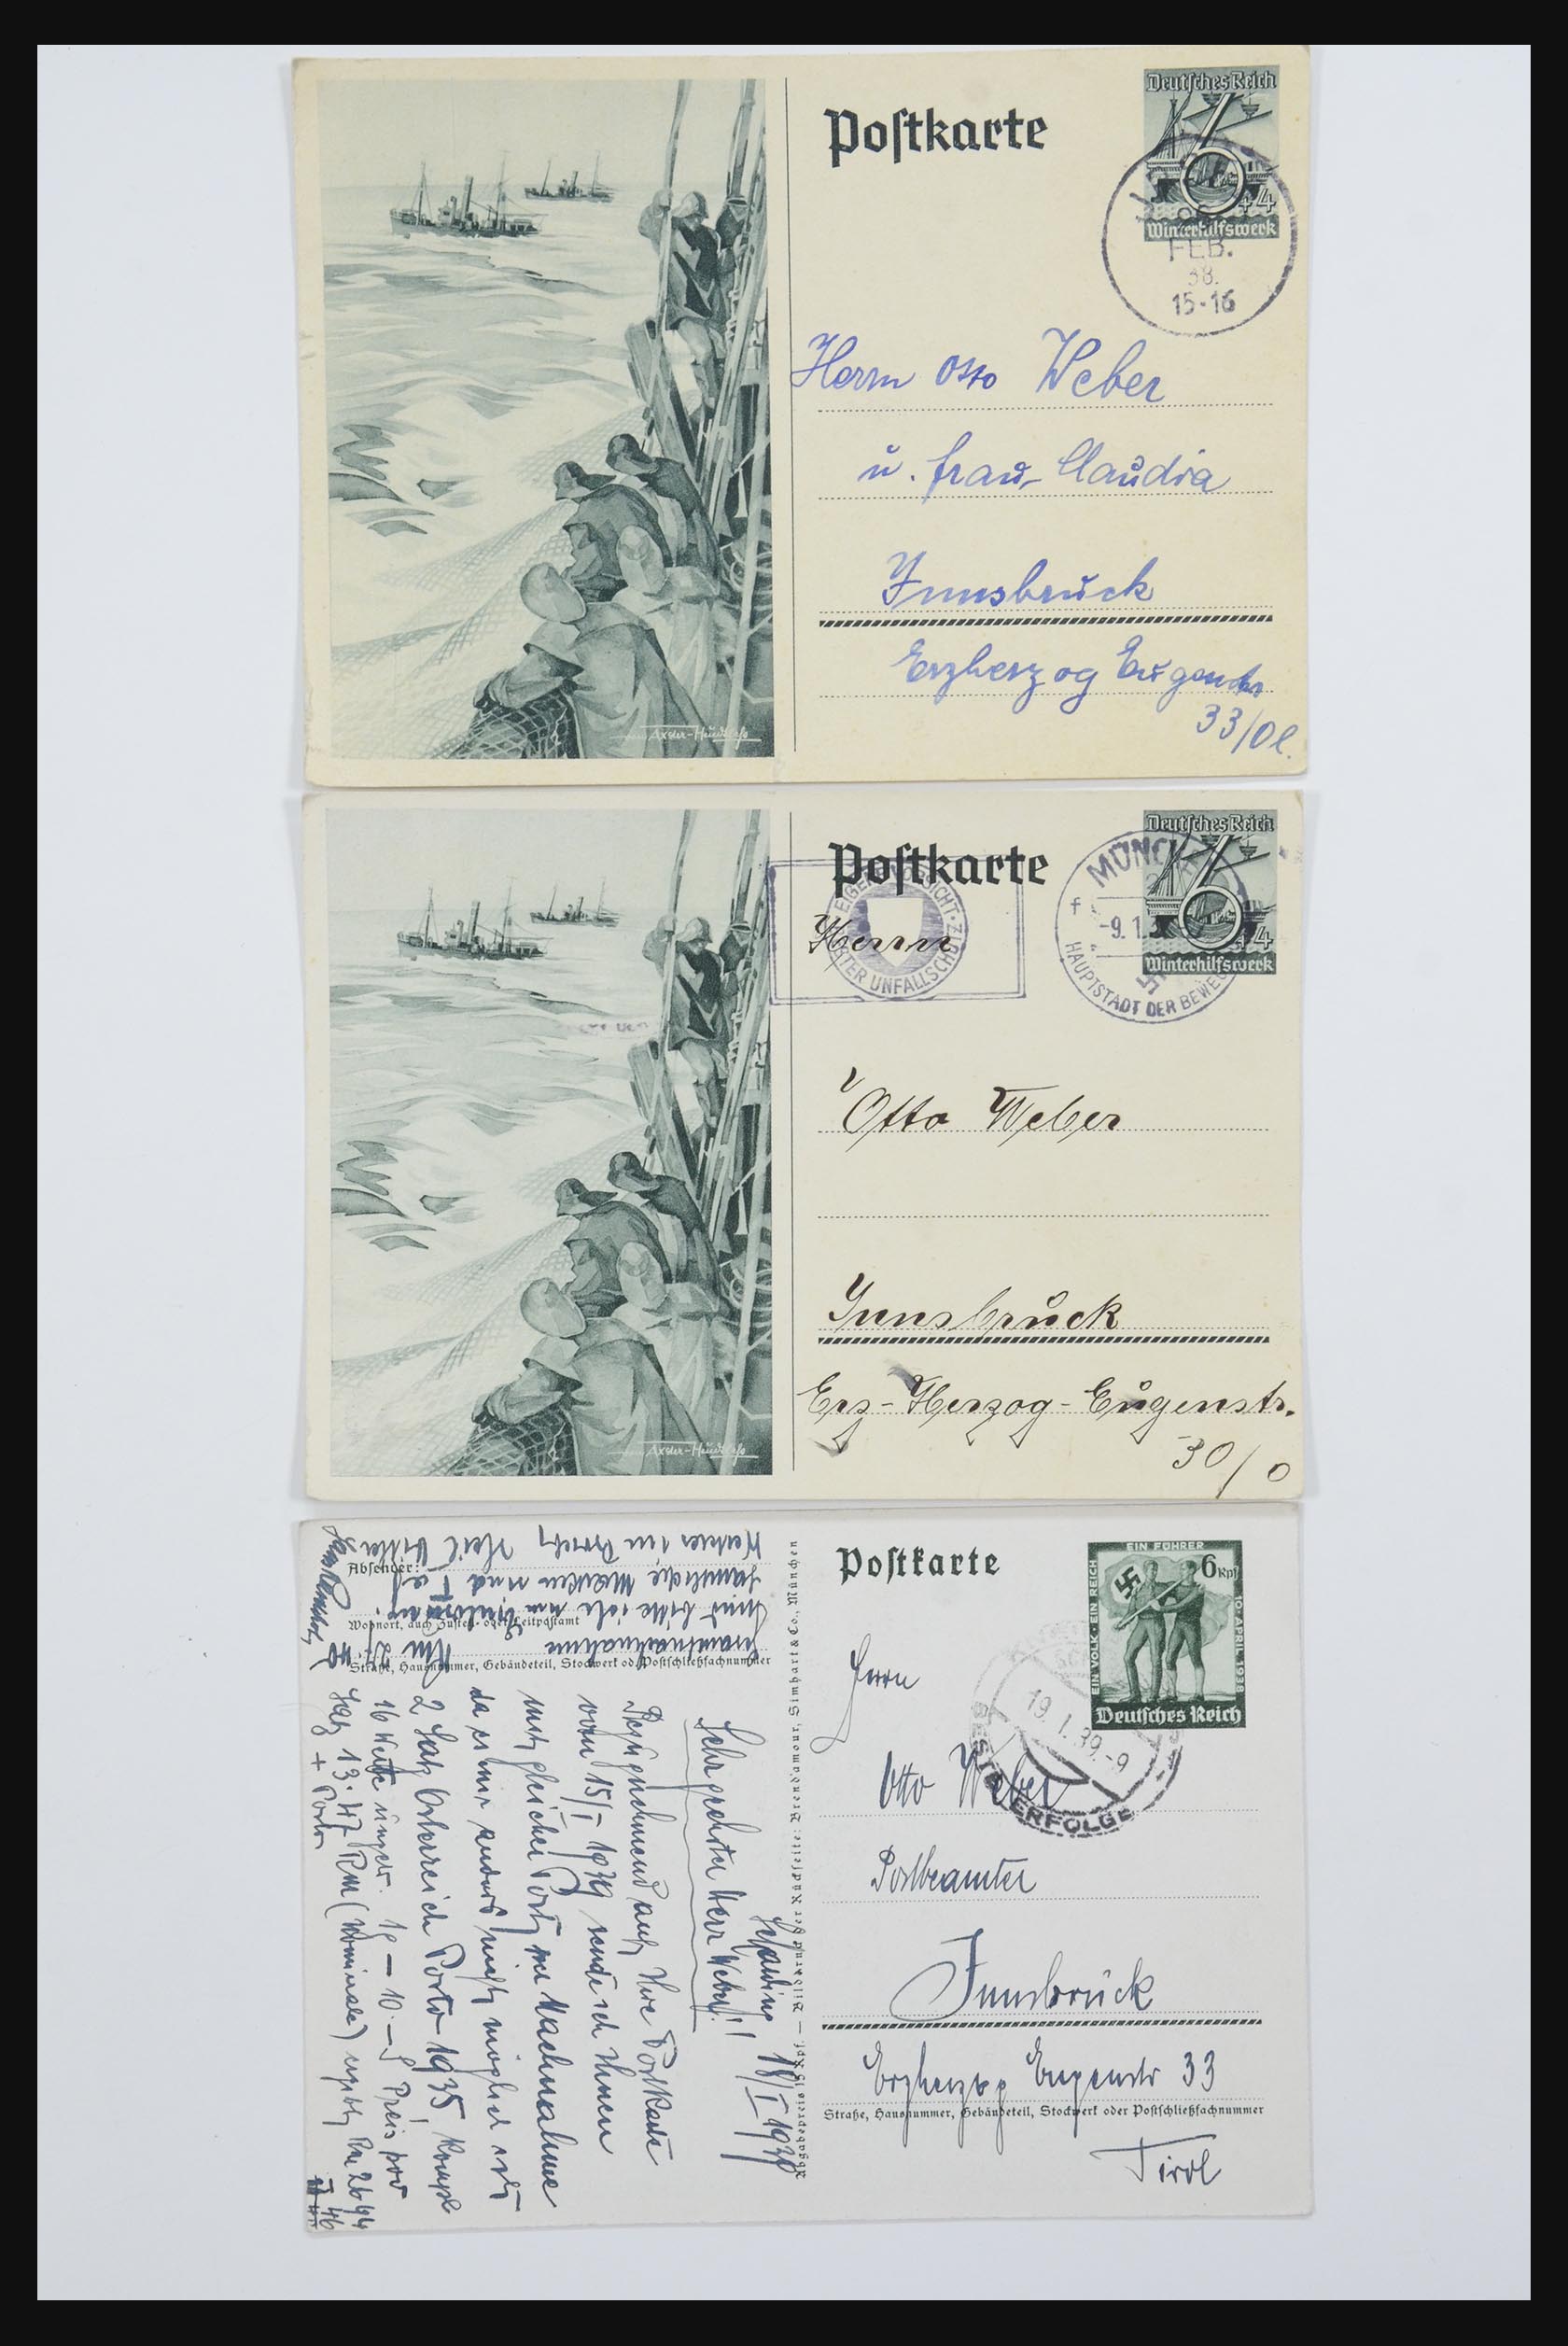 Postkarte
Deutsches Reich
6
+4
Winterhilfswerk
FEB.
38.
15-16
Herrn Otto Weber
u. Frau Claudia
Innsbruck
Erzherzog Eugenstr
33/
Axster-Heudtlaß
Postkarte
Deutsches Reich
6
+4
Winterhilfswerk
MÜNCHEN
f
-9. 1.
HAUPTSTADT DER BEWEG
UNFALLSCHUTZ
Herrn
Otto Weber
Innsbruck
Erz-Herzog-Eugenstr.
30/0
Axster-Heudtlaß
Postkarte
EIN FÜHRER
EIN VOLK · EIN REICH
10. APRIL 1938
6 Rpf
Deutsches Reich
19. 1. 39.-9
ERFOLGE
Herrn
Otto Weber
Postbeamter
Innsbruck
Erzherzog Eugenstr 33
Straße, Hausnummer, Gebäudeteil, Stockwerk oder Postschließfachnummer
Tirol
Abgabepreis 15 Rpf. — Bilddruck der Rückseite: Brend'amour, Simhart & Co., München
Absender:
Wohnort, auch Zustell- oder Leitpostamt
Straße, Hausnummer, Gebäudeteil, Stockwerk od. Postschließfachnummer
18/I 1939
Sehr geehrter Herr Weber!!
Bezugnehmend auf Ihre Postkarte
vom 15/I 1939 sende ich Ihnen
mit gleicher Post per Nachnahme
da es mir anders nicht möglich ist
2 Satz Österreich Porto 1935, kompl
16 Werte ungebr. 1g — 10.— S Preis pro
Satz 13.47 Rm (Nominale) ergibt Rm 26 94
+ Porto